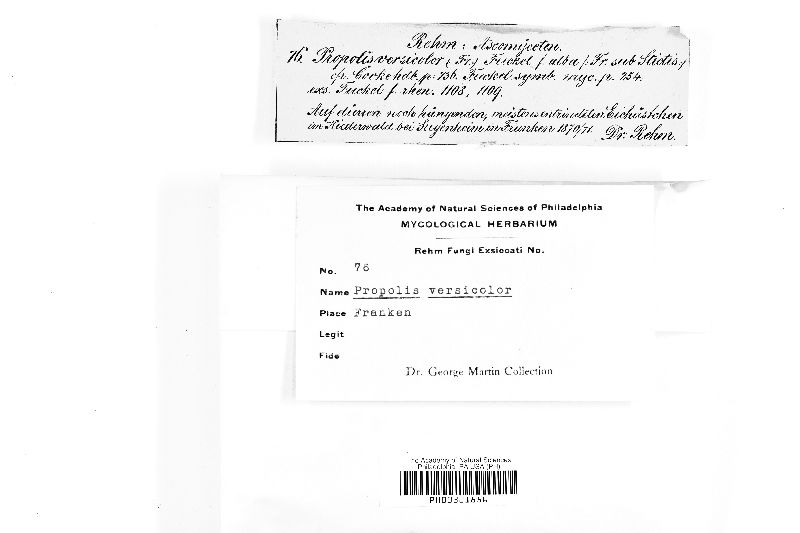 Rehm: Ascomyceten.
76. Propolis versicolor (Fr.) Fuckel f. alba (Fr. sub Stictis)
cfr. Cooke hdb. p. 756. Fuckel symb. myc. p. 254.
exs. Fuckel f. rhen. 1108, 1109.
Auf dürren noch hängenden, meistens entrindeten Eichästchen
im Niederwald bei Sugenheim in Franken 1870/71. Dr. Rehm.
The Academy of Natural Sciences of Philadelphia
MYCOLOGICAL HERBARIUM
Rehm Fungi Exsiccati No.
No. 76
Name Propolis versicolor
Place Franken
Legit
Fide
Dr. George Martin Collection
The Academy of Natural Sciences
Philadelphia, PA USA (PH)